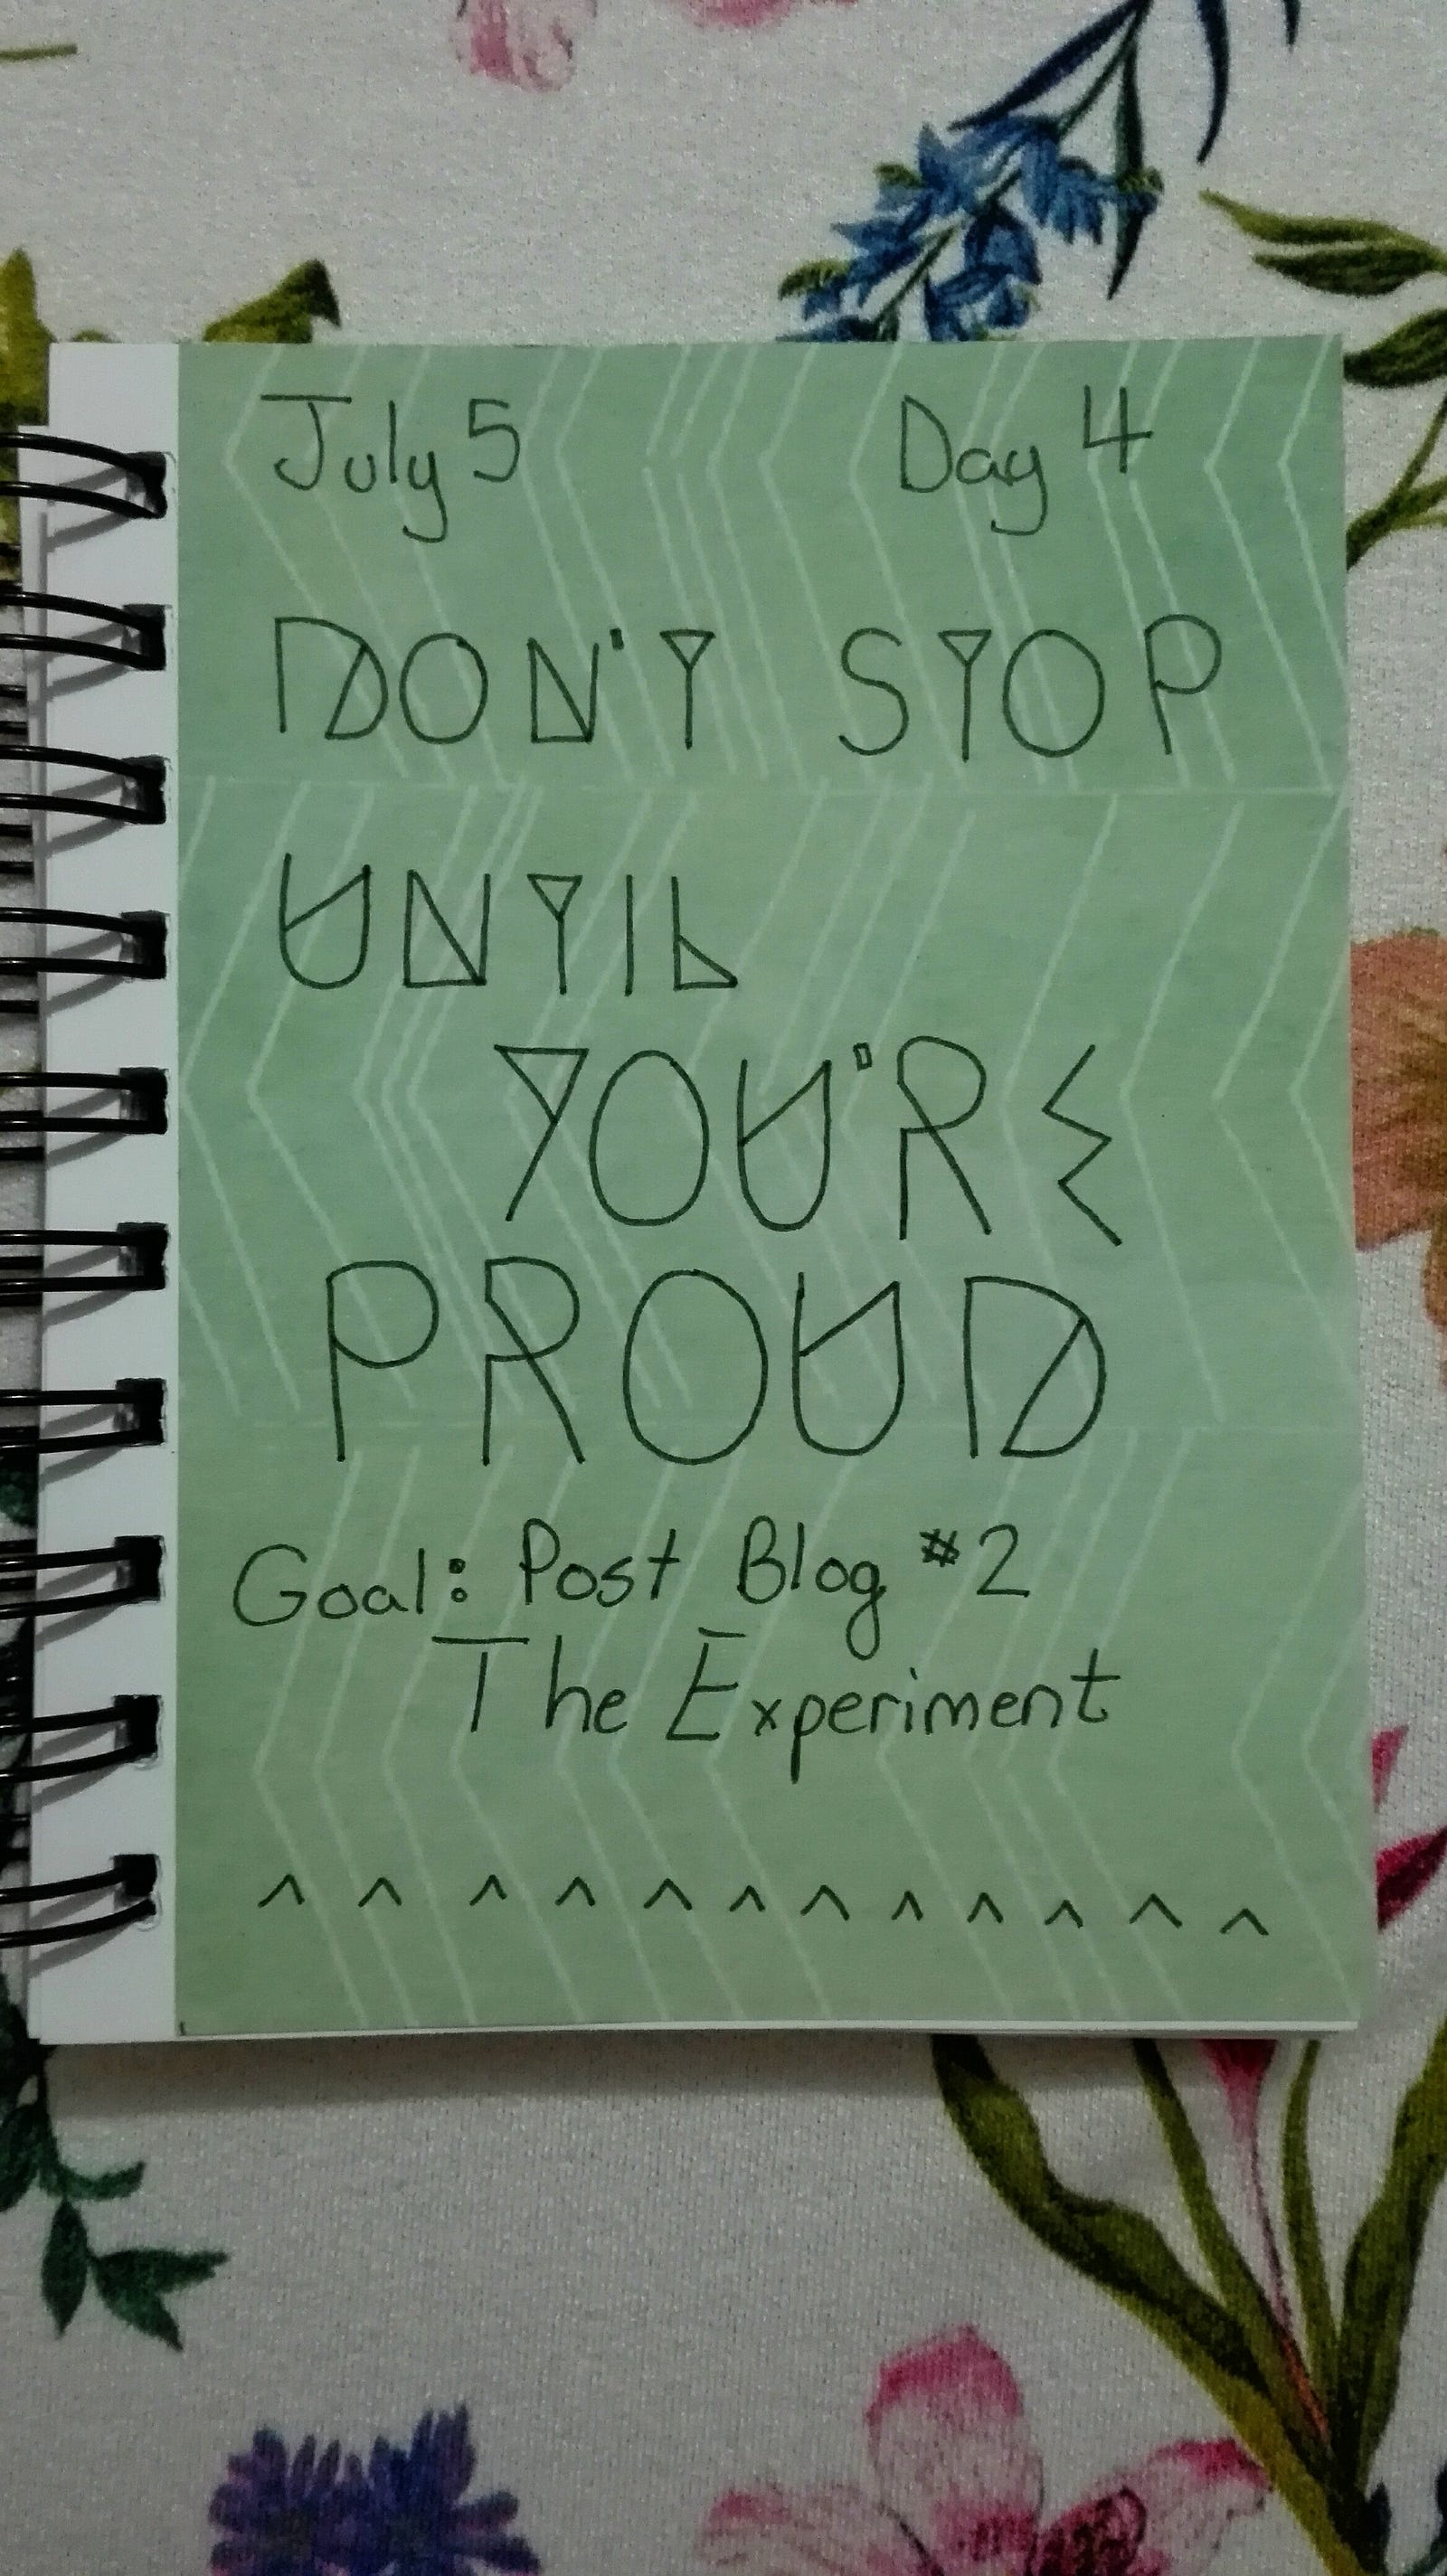 July 5 Day 4
DON'T STOP
UNTIL
YOU'RE
PROUD
Goal: Post Blog #2
The Experiment
^ ^ ^ ^ ^ ^ ^ ^ ^ ^ ^ ^